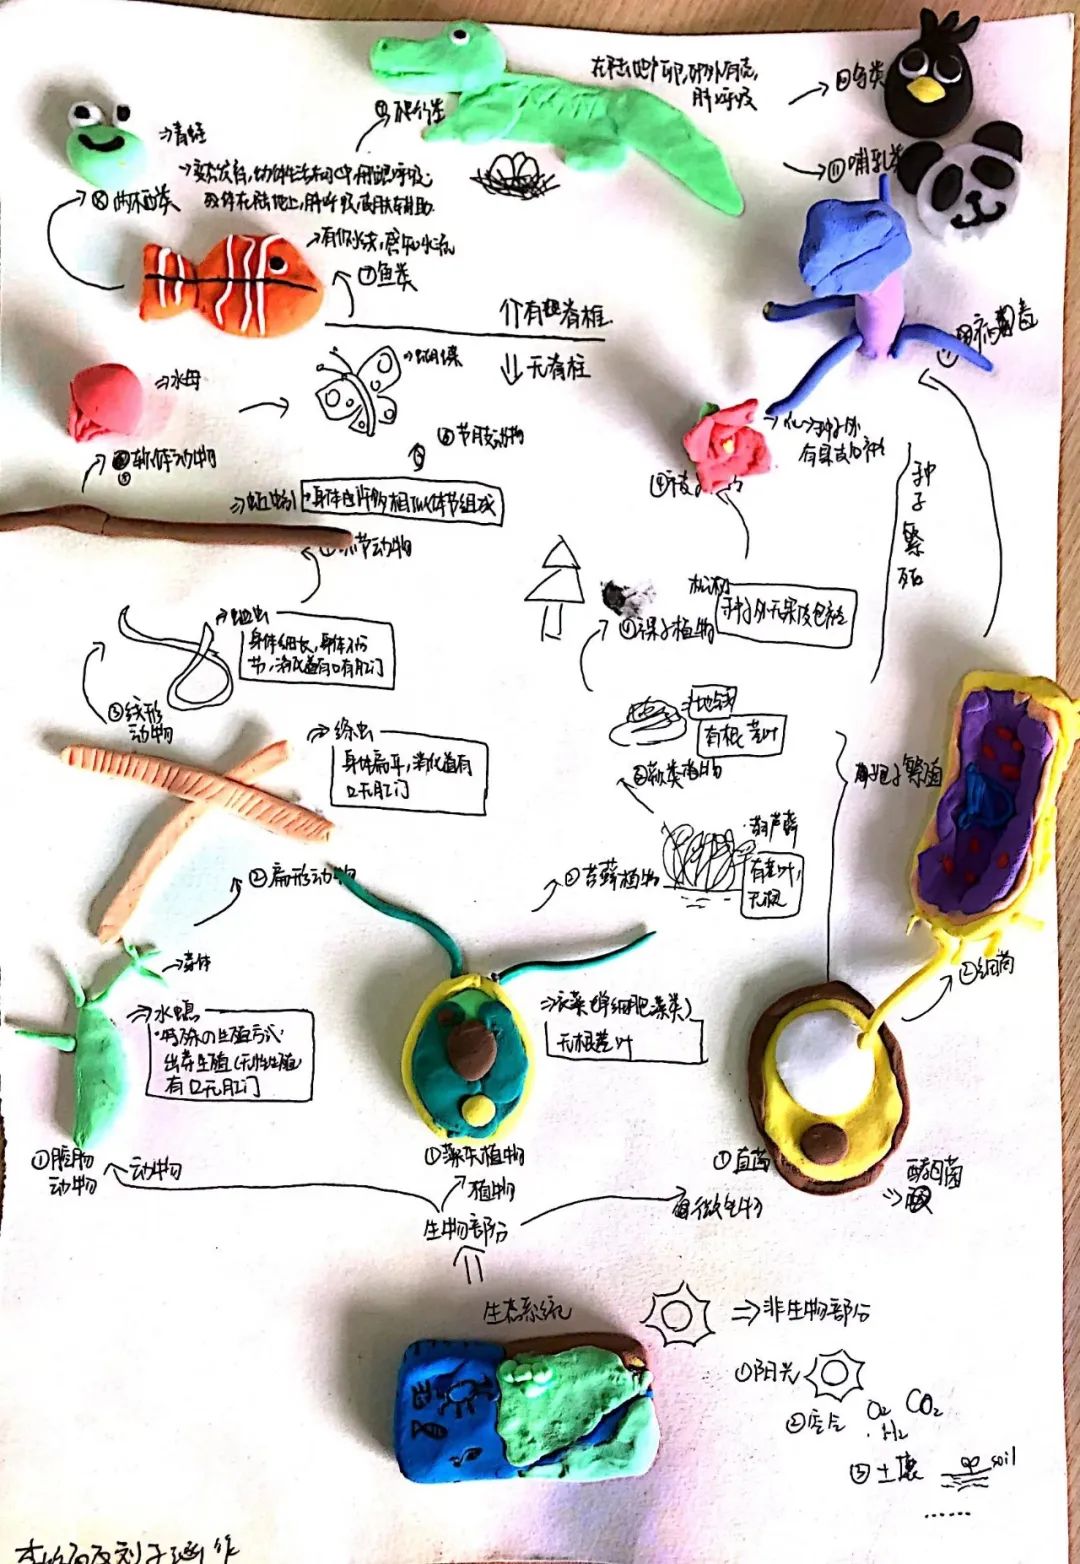 →青蛙
⑧两栖类
→变态发育,幼体生活在水中用鳃呼吸,
成体在陆地上,肺呼吸,皮肤辅助.
⑨爬行类
在陆地产卵,卵外有壳,
肺呼吸
⑩鸟类
⑪哺乳类
→有侧线,感知水流
⑦鱼类
↑有脊柱
↓无脊柱
→水母
软体动物
→蝴蝶
⑥节肢动物
→蚯蚓
身体由许多相似体节组成
环节动物
→蛔虫
身体细长,身体不分
节,消化道有口有肛门
③线形
动物
→绦虫
身体扁平,消化道有
口无肛门
②扁形动物
→芽体
→水螅
出芽生殖(无性生殖
有口无肛门
①腔肠
动物
动物
病毒
→花→种子外
有果皮包被
种子繁殖
松树
种子外无果皮包被
④裸子植物
地钱
有根茎叶
③蕨类植物
葫芦藓
有茎叶,
无根
②苔藓植物
孢子繁殖
②细菌
→衣藻(单细胞藻类)
无根茎叶
①藻类植物
植物
①真菌
⇒酵母菌
微生物
生物部分
生态系统
⇒非生物部分
①阳光
②空气 O₂ CO₂
③土壤 soil
……